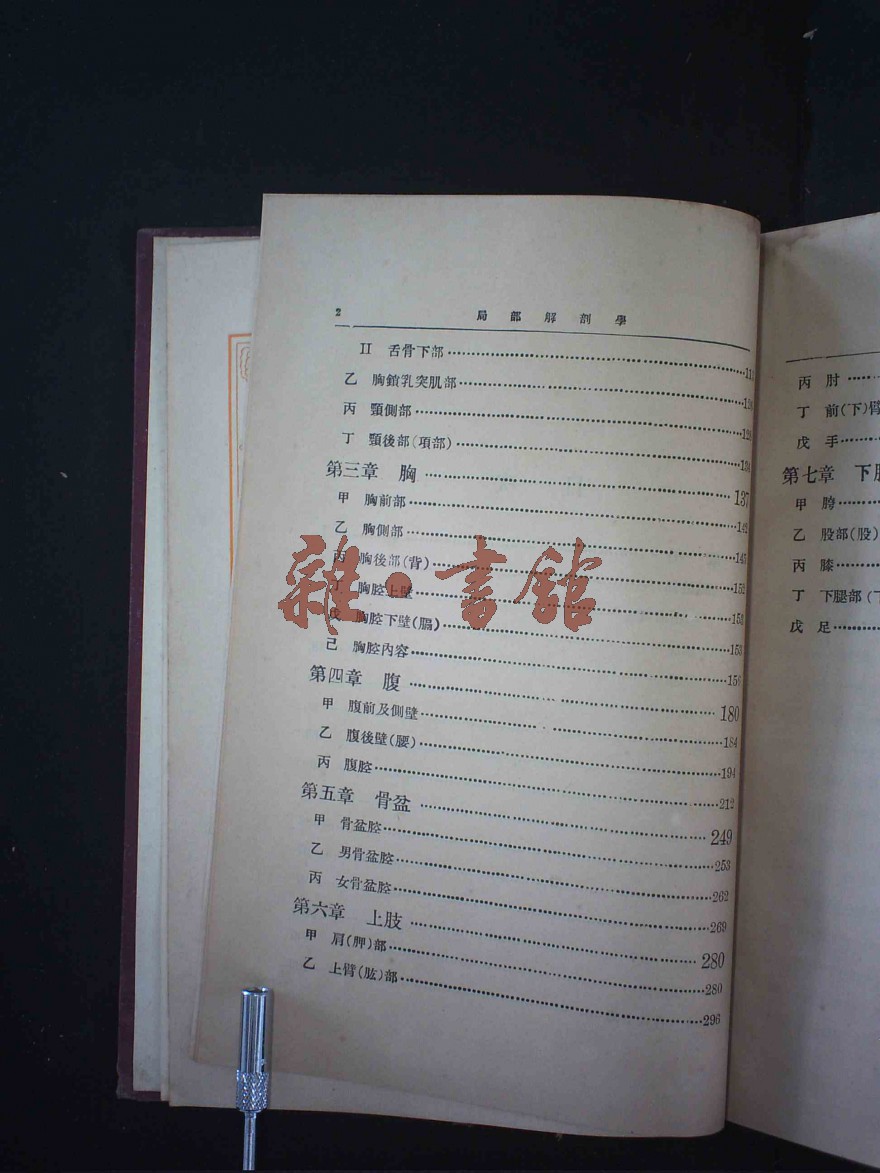 2 局部解剖學
II 舌骨下部
乙 胸鎖乳突肌部
丙 頸側部
丁 頸後部(項部)……134
第三章 胸……137
甲 胸前部……142
乙 胸側部……145
丙 胸後部(背)……152
丁 胸腔上壁……153
戊 胸腔下壁(膈)……153
己 胸腔內容
第四章 腹……180
甲 腹前及側壁……184
乙 腹後壁(腰)……194
丙 腹腔……212
第五章 骨盆……249
甲 骨盆腔……253
乙 男骨盆腔……262
丙 女骨盆腔……269
第六章 上肢……280
甲 肩(胛)部……280
乙 上臂(肱)部……296
丙 肘……
丁 前(下)臂
戊 手……
第七章 下
甲 胯……
乙 股部(股)
丙 膝……
丁 下腿部(
戊 足……
雜·書館